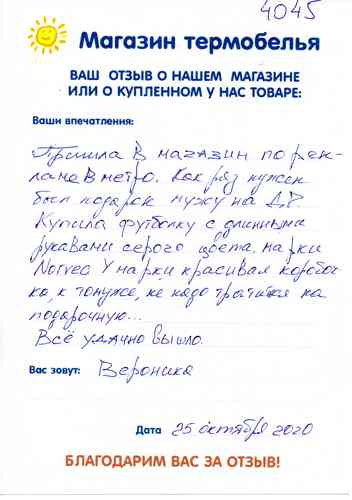 4045
Магазин термобелья
ВАШ ОТЗЫВ О НАШЕМ МАГАЗИНЕ
ИЛИ О КУПЛЕННОМ У НАС ТОВАРЕ:
Ваши впечатления:
Пришла в магазин по рек-
ламе в метро. Как раз нужен
был подарок мужу на Д.Р.
Купила футболку с длинными
рукавами серого цвета марки
Norveg. У марки красивая короboч
ко, к тому же, не надо тратится на
подарочную...
Всё удачно вышло.
Вас зовут: Вероника
Дата 25 октября 2020
БЛАГОДАРИМ ВАС ЗА ОТЗЫВ!